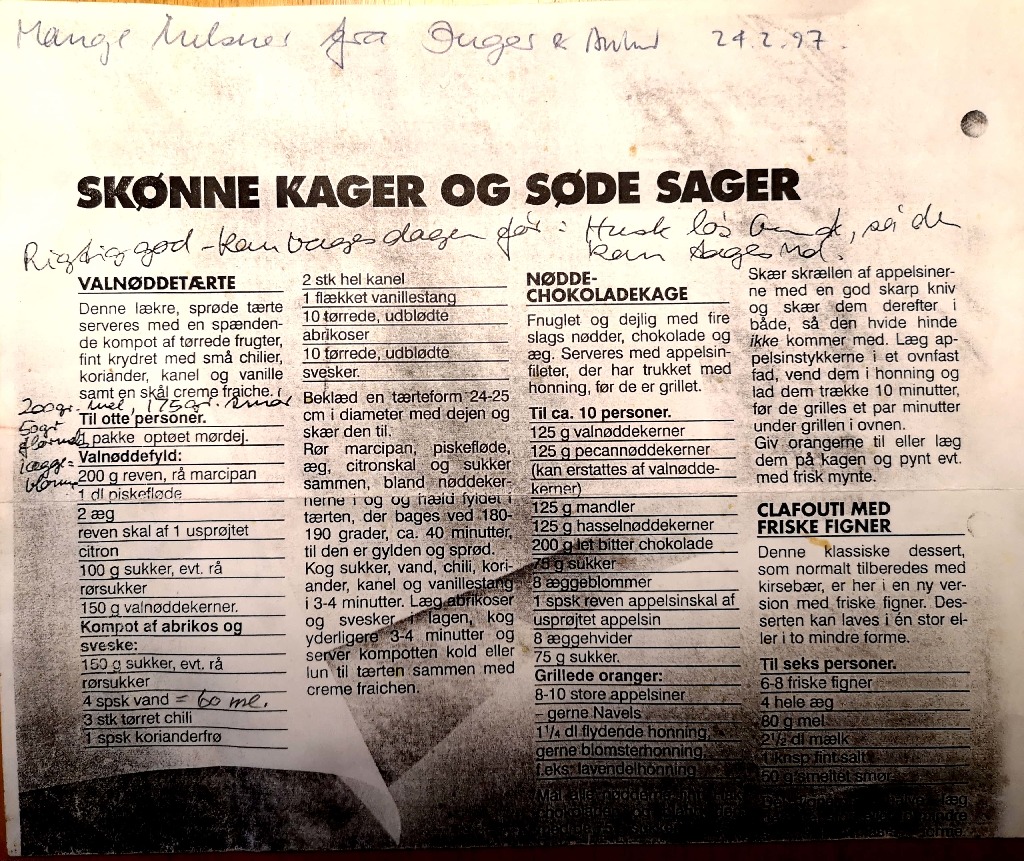 Mange hilsner fra Inger & 24.2.97.
SKØNNE KAGER OG SØDE SAGER
Rigtig god - kan bages dagen før: Husk løs bund, så den
kan tages ud.
VALNØDDETÆRTE
Denne lækre, sprøde tærte
serveres med en spænden-
de kompot af tørrede frugter,
fint krydret med små chilier,
koriander, kanel og vanille
samt en skål creme fraiche.
200 gr. mel, 175 gr. smør
50 gr
1 ægge-
blomme
Til otte personer.
1 pakke optøet mørdej.
Valnøddefyld:
200 g reven, rå marcipan
1 dl piskefløde
2 æg
reven skal af 1 usprøjtet
citron
100 g sukker, evt. rå
rørsukker
150 g valnøddekerner.
Kompot af abrikos og
sveske:
150 g sukker, evt. rå
rørsukker
4 spsk vand = 60 ml.
3 stk tørret chili
1 spsk korianderfrø
2 stk hel kanel
1 flækket vanillestang
10 tørrede, udblødte
abrikoser
10 tørrede, udblødte
svesker.
Beklæd en tærteform 24-25
cm i diameter med dejen og
skær den til.
Rør marcipan, piskefløde,
æg, citronskal og sukker
sammen, bland nøddeker-
nerne i og og hæld fyldet i
tærten, der bages ved 180-
190 grader, ca. 40 minutter,
til den er gylden og sprød.
Kog sukker, vand, chili, kori-
ander, kanel og vanillestang
i 3-4 minutter. Læg abrikoser
og svesker i lagen, kog
yderligere 3-4 minutter og
server kompotten kold eller
lun til tærten sammen med
creme fraichen.
NØDDE-
CHOKOLADEKAGE
Fnuglet og dejlig med fire
slags nødder, chokolade og
æg. Serveres med appelsin-
fileter, der har trukket med
honning, før de er grillet.
Til ca. 10 personer.
125 g valnøddekerner
125 g pecannøddekerner
(kan erstattes af valnødde-
kerner)
125 g mandler
125 g hasselnøddekerner
200 g let bitter chokolade
75 g sukker
8 æggeblommer
1 spsk reven appelsinskal af
usprøjtet appelsin
8 æggehvider
75 g sukker.
Grillede oranger:
8-10 store appelsiner
- gerne Navels
1¼ dl flydende honning,
gerne blomsterhonning,
f.eks. lavendelhonning
Skær skrællen af appelsiner-
ne med en god skarp kniv
og skær dem derefter i
både, så den hvide hinde
ikke kommer med. Læg ap-
pelsinstykkerne i et ovnfast
fad, vend dem i honning og
lad dem trække 10 minutter,
før de grilles et par minutter
under grillen i ovnen.
Giv orangerne til eller læg
dem på kagen og pynt evt.
med frisk mynte.
CLAFOUTI MED
FRISKE FIGNER
Denne klassiske dessert,
som normalt tilberedes med
kirsebær, er her i en ny ver-
sion med friske figner. Des-
serten kan laves i én stor el-
ler i to mindre forme.
Til seks personer.
6-8 friske figner
4 hele æg
80 g mel
2½ dl mælk
1 knsp fint salt
50 g smeltet smør